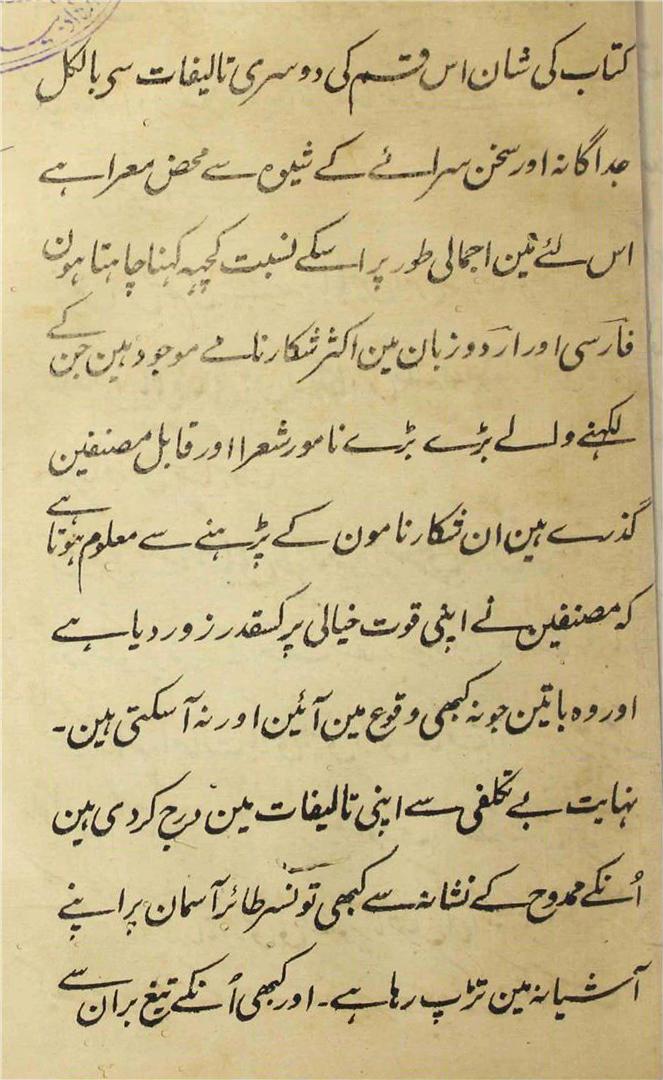 کتاب کی شان اس قسم کی دوسری تالیفات سی بالکل
جداگانہ اور سخن سرائے کے شیوہ سے محض معرا ہے
اس لئے مین اجمالی طور پر اسکے نسبت کچہہ کہنا چاہتا ہون
فارسی اور اردو زبان مین اکثر شکارنامے موجود ہین جن کے
لکہنے والے بڑے بڑے نامور شعرا اور قابل مصنفین
گذرے ہین ان شکارنامون کے پڑہنے سے معلوم ہوتا ہے
کہ مصنفین نے اپنی قوت خیالی پر کسقدر زور دیا ہے
اور وہ باتین جو نہ کبھی وقوع مین آئین اور نہ آسکتی ہین۔
نہایت بے تکلفی سے اپنی تالیفات مین درج کردی ہین
اُنکے ممدوح کے نشانہ سے کبھی تو نسر طائر آسمان پر اپنے
آشیانہ مین تڑپ رہا ہے۔ اور کبھی اُنکے تیغ بران سے